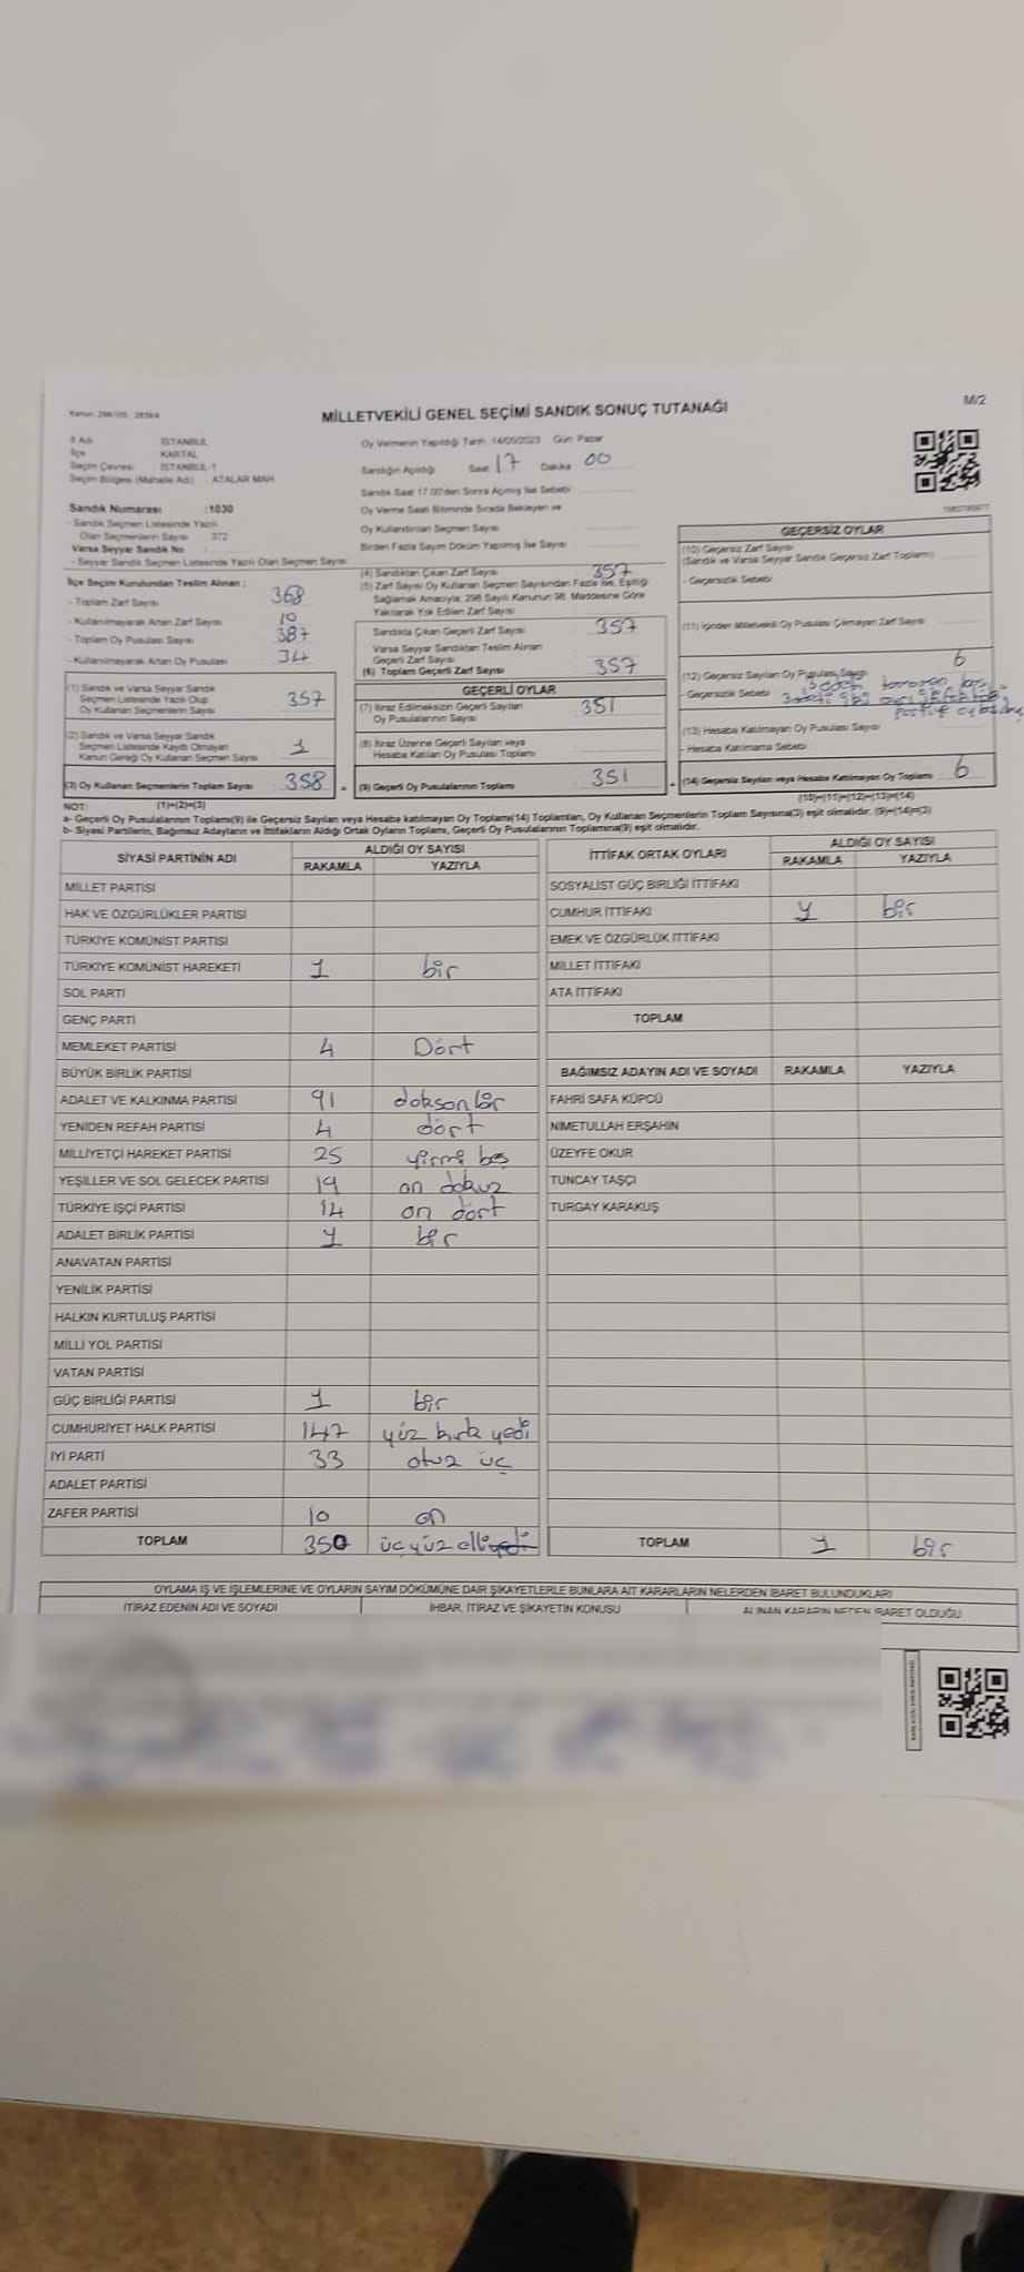 MİLLETVEKİLİ GENEL SEÇİMİ SANDIK SONUÇ TUTANAĞI
M/2
İl Adı İSTANBUL
İlçe KARTAL
Seçim Çevresi İSTANBUL-1
Seçim Bölgesi (Mahalle Adı) : ATALAR MAH
Sandık Numarası :1030
- Sandık Seçmen Listesinde Yazılı
Olan Seçmenlerin Sayısı 372
Varsa Seyyar Sandık No
- Seyyar Sandık Seçmen Listesinde Yazılı Olan Seçmen Sayısı
Oy Vermenin Yapıldığı Tarih 14/05/2023 Gün Pazar
Sandığın Açıldığı Saat 17 Dakika 00
Sandık Saat 17.00'den Sonra Açılmış İse Sebebi
Oy Verme Saati Bitiminde Sırada Bekleyen ve
Oy Kullandırılan Seçmen Sayısı
Birden Fazla Sayım Döküm Yapılmış İse Sayısı
İlçe Seçim Kurulundan Teslim Alınan :
- Toplam Zarf Sayısı 368
- Kullanılmayarak Artan Zarf Sayısı 10
- Toplam Oy Pusulası Sayısı 387
- Kullanılmayarak Artan Oy Pusulası 34
(1) Sandık ve Varsa Seyyar Sandık
Seçmen Listesinde Yazılı Olup
Oy Kullanan Seçmenlerin Sayısı 357
(2) Sandık ve Varsa Seyyar Sandık
Seçmen Listesinde Kaydı Olmayan
Kanun Gereği Oy Kullanan Seçmen Sayısı 1
(3) Oy Kullanan Seçmenlerin Toplam Sayısı 358
(4) Sandıktan Çıkan Zarf Sayısı 357
(5) Zarf Sayısı Oy Kullanan Seçmen Sayısından Fazla İse, Eşitliği
Sağlamak Amacıyla; 298 Sayılı Kanunun 98. Maddesine Göre
Yakılarak Yok Edilen Zarf Sayısı
Sandıkta Çıkan Geçerli Zarf Sayısı 357
Varsa Seyyar Sandıktan Teslim Alınan
Geçerli Zarf Sayısı
(6) Toplam Geçerli Zarf Sayısı 357
GEÇERLİ OYLAR
(7) İtiraz Edilmeksizin Geçerli Sayılan
Oy Pusulalarının Sayısı 351
(8) İtiraz Üzerine Geçerli Sayılan veya
Hesaba Katılan Oy Pusulası Toplamı
(9) Geçerli Oy Pusulalarının Toplamı 351
GEÇERSİZ OYLAR
(10) Geçersiz Zarf Sayısı
(Sandık ve Varsa Seyyar Sandık Geçersiz Zarf Toplamı)
- Geçersizlik Sebebi
(11) İçinden Milletvekili Oy Pusulası Çıkmayan Zarf Sayısı
(12) Geçersiz Sayılan Oy Pusulası Sayısı 6
- Geçersizlik Sebebi
(13) Hesaba Katılmayan Oy Pusulası Sayısı
- Hesaba Katılmama Sebebi
(14) Geçersiz Sayılan veya Hesaba Katılmayan Oy Toplamı 6
NOT: (1)+(2)=(3)
(10)+(11)+(12)+(13)=(14)
a- Geçerli Oy Pusulalarının Toplamı(9) ile Geçersiz Sayılan veya Hesaba katılmayan Oy Toplamı(14) Toplamları, Oy Kullanan Seçmenlerin Toplam Sayısına(3) eşit olmalıdır. (9)+(14)=(3)
b- Siyasi Partilerin, Bağımsız Adayların ve İttifakların Aldığı Ortak Oyların Toplamı, Geçerli Oy Pusulalarının Toplamına(9) eşit olmalıdır.
SİYASİ PARTİNİN ADI ALDIĞI OY SAYISI
RAKAMLA YAZIYLA
MİLLET PARTİSİ
HAK VE ÖZGÜRLÜKLER PARTİSİ
TÜRKİYE KOMÜNİST PARTİSİ
TÜRKİYE KOMÜNİST HAREKETİ 1 bir
SOL PARTİ
GENÇ PARTİ
MEMLEKET PARTİSİ 4 Dört
BÜYÜK BİRLİK PARTİSİ
ADALET VE KALKINMA PARTİSİ 91 doksan bir
YENİDEN REFAH PARTİSİ 4 dört
MİLLİYETÇİ HAREKET PARTİSİ 25 yirmi beş
YEŞİLLER VE SOL GELECEK PARTİSİ 19 on dokuz
TÜRKİYE İŞÇİ PARTİSİ 14 on dört
ADALET BİRLİK PARTİSİ 1 bir
ANAVATAN PARTİSİ
YENİLİK PARTİSİ
HALKIN KURTULUŞ PARTİSİ
MİLLİ YOL PARTİSİ
VATAN PARTİSİ
GÜÇ BİRLİĞİ PARTİSİ 1 bir
CUMHURİYET HALK PARTİSİ 147 yüz kırk yedi
İYİ PARTİ 33 otuz üç
ADALET PARTİSİ
ZAFER PARTİSİ 10 on
TOPLAM 350 üç yüz elli
İTTİFAK ORTAK OYLARI ALDIĞI OY SAYISI
RAKAMLA YAZIYLA
SOSYALİST GÜÇ BİRLİĞİ İTTİFAKI
CUMHUR İTTİFAKI 1 bir
EMEK VE ÖZGÜRLÜK İTTİFAKI
MİLLET İTTİFAKI
ATA İTTİFAKI
TOPLAM
BAĞIMSIZ ADAYIN ADI VE SOYADI RAKAMLA YAZIYLA
FAHRİ SAFA KÜPCÜ
NİMETULLAH ERŞAHİN
ÜZEYFE OKUR
TUNCAY TAŞÇI
TURGAY KARAKUŞ
TOPLAM 1 bir
OYLAMA İŞ VE İŞLEMLERİNE VE OYLARIN SAYIM DÖKÜMÜNE DAİR ŞİKAYETLERLE BUNLARA AİT KARARLARIN NELERDEN İBARET BULUNDUKLARI
İTİRAZ EDENİN ADI VE SOYADI
İHBAR, İTİRAZ VE ŞİKAYETİN KONUSU
ALINAN KARARIN NEDEN İBARET OLDUĞU